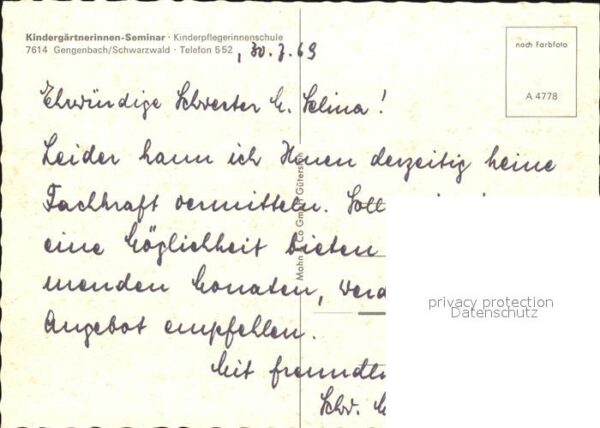 Kindergärtnerinnen-Seminar · Kinderpflegerinnenschule
7614 Gengenbach/Schwarzwald · Telefon 5 52
, 30. 7. 69
nach Farbfoto
A 4778
Ehrwürdige Schwester M. Selina!
Leider kann ich Ihnen derzeitig keine
Fachkraft vermitteln. Soll
eine Möglichkeit bieten
menden Monaten, werd
Angebot empfehlen.
Mit freundl
Schw. M
Mohn & Co GmbH Gütersloh
privacy protection
Datenschutz